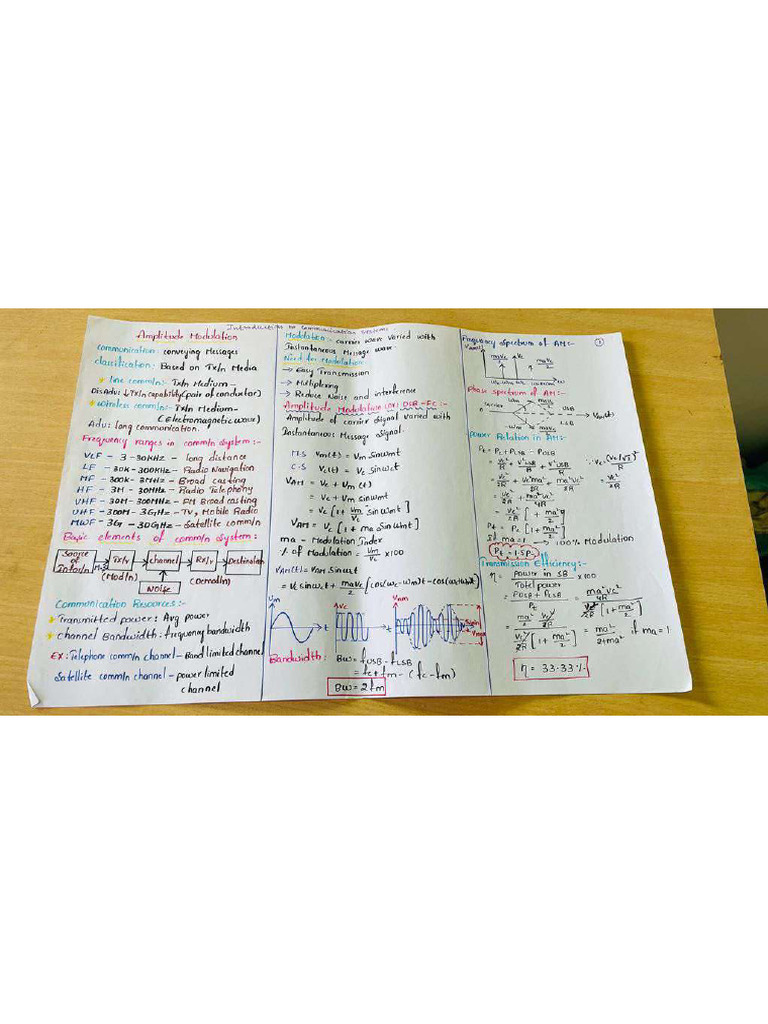 Introduction to Communication Systems
Amplitude Modulation
Communication: conveying Messages
Classification: Based on Tx/n Media
* line comm/n: Tx/n Medium-
DisAdv: ↓Tx/n capability (pair of conductor)
* wireless comm/n: Tx/n Medium-
(Electromagnetic wave)
Adv: long communication.
Frequency ranges in comm/n system:-
VLF - 3-30KHZ - long distance
LF - 30K-300KHZ - Radio Navigation
MF - 300K-3MHZ - Broad casting
HF - 3M - 30MHZ - Radio Telephony
VHF - 30M-300MHZ - FM Broad casting
UHF - 300M-3GHZ - TV, Mobile Radio
MWF - 3G - 30GHZ - Satellite comm/n
Basic elements of comm/n system:
Source of Info/n
M.S
Tx/r
channel
Rx/r
Destination
(Mod/n)
(Demod/n)
NOISE
Communication Resources:-
* Transmitted power: Avg power
* channel Bandwidth: frequency bandwidth
EX: Telephone comm/n channel - Band limited channel
Satellite comm/n channel - power limited
channel
Modulation: carrier wave varied with
Instantaneous Message wave
Need for Modulation
→ Easy Transmission
→ Multiplexing
→ Reduce Noise and interference
Amplitude Modulation (or) DSB-FC
Amplitude of carrier signal varied with
Instantaneous Message signal.
M.S Vm(t) = Vm sinωmt
C.S Vc(t) = Vc sinωct
VAM = Vc + Vm(t)
= Vc + Vm sinωmt
= Vc [1+ Vm/Vc sinωmt]
VAM = Vc [1+ ma sinωmt]
ma - Modulation Index
% of Modulation = Vm/Vc x100
VAM(t) = VAM sinωct
= Vc sinωct + maVc/2 [cos(ωc-ωm)t - cos(ωc+ωm)t]
Vm
t
Vc
t
Bandwidth: BW = fUSB - fLSB
= fc+fm - (fc-fm)
BW = 2fm
1
Frequency spectrum of AM:-
Vc
maVc/2
phase spectrum of AM:-
carrier
USB
LSB
VAM(t)
power Relation in AM:-
Pt = Pc + PLSB + PUSB
= Vc²/2R [1 + ma²/2]
Pt = Pc [1+ ma²/2]
If ma=1 → 100% Modulation
Pt = 1.5Pc
Transmission Efficiency:-
η = power in SB / Total power x100
= PUSB + PLSB / Pt
= ma²/2+ma² if ma=1
η = 33.33%